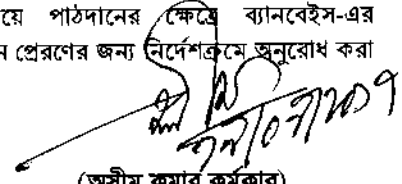 য়ে পাঠদানের ক্ষেত্রে ব্যানবেইস-এর
ন প্রেরণের জন্য নির্দেশক্রমে অনুরোধ করা
(অসীম কুমার কর্মকার)